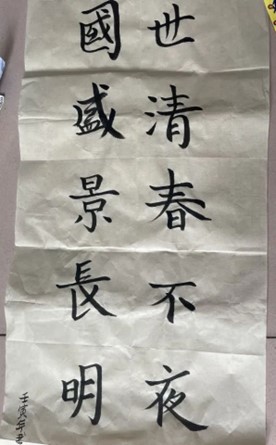 世清春不夜
國盛景長明
壬寅年書